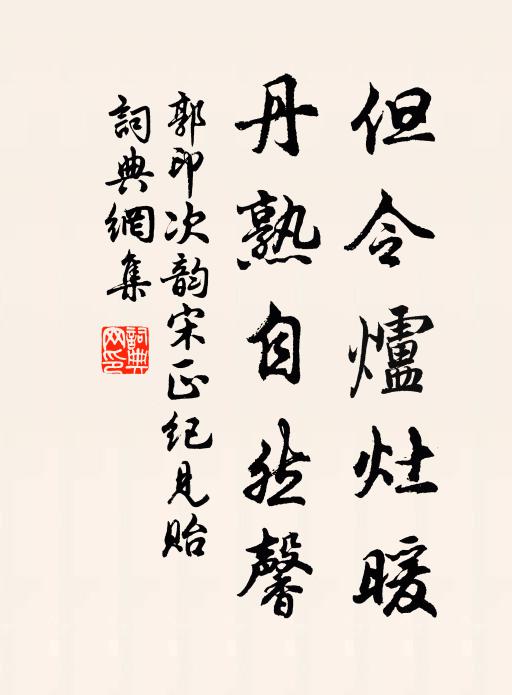 但令爐灶暖
丹熟自然馨
郭印次韵宋正纪見貽
詞典網集
詞典網印